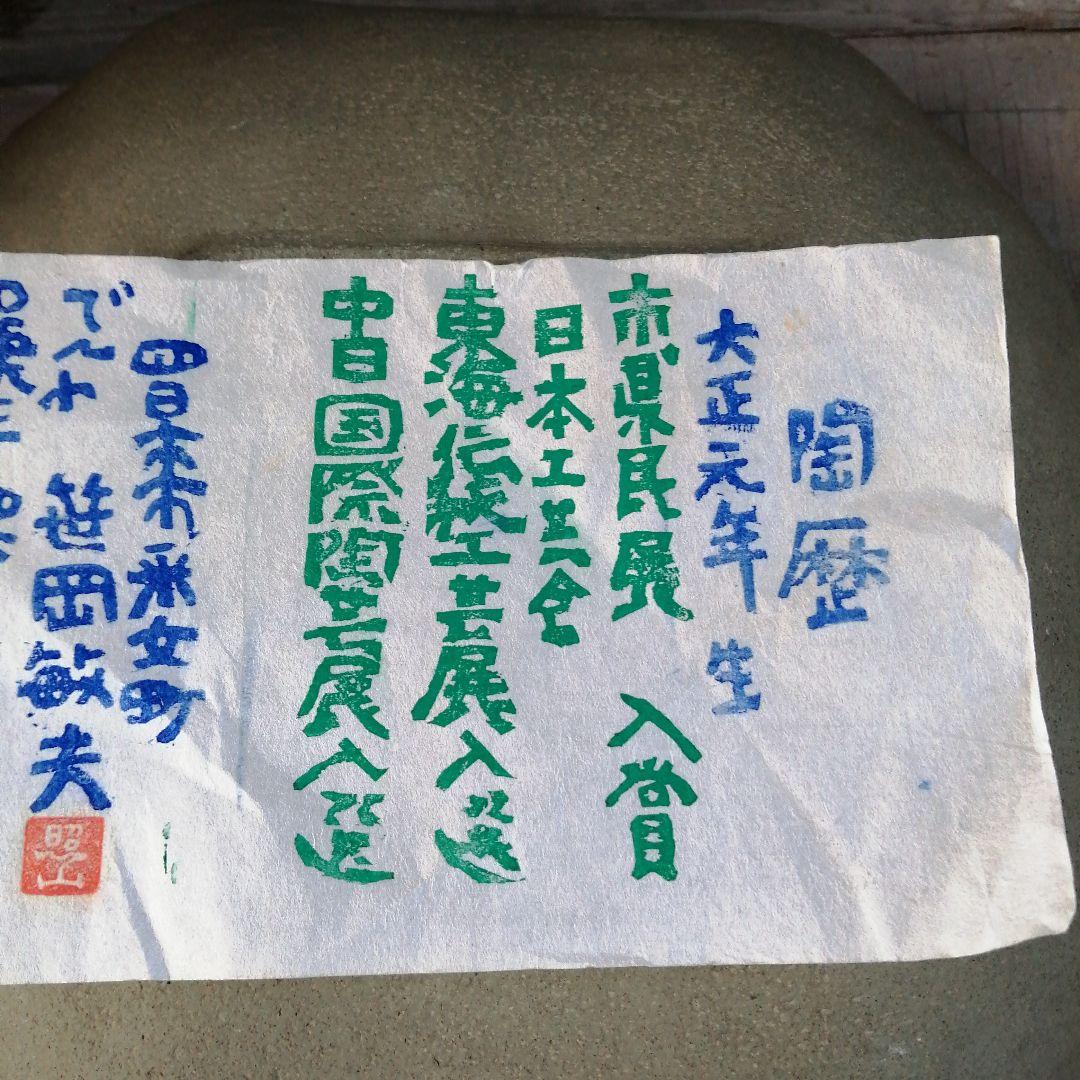 陶歴
大正元年生
市県民展 入賞
日本工芸会
東海伝統工芸展入選
中日国際陶芸展入選
四日市市采女町
でんわ 笹岡敏夫
照山